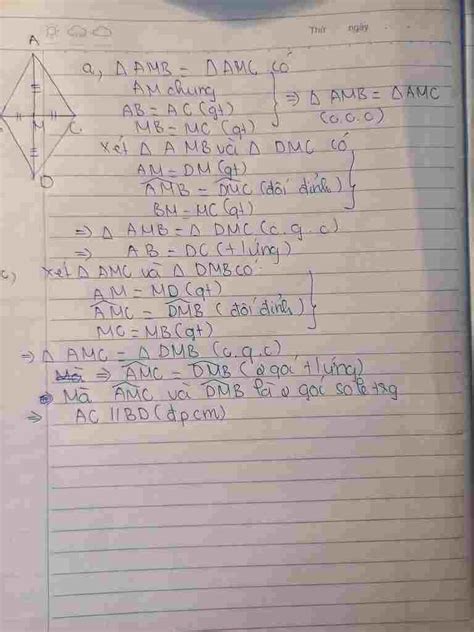 Thứ ngày
A
M
C
D
a, Δ AMB = Δ AMC có
AM chung
AB = AC (gt)
MB = MC (gt)
=> Δ AMB = Δ AMC
(c.c.c)
Xét Δ AMB và Δ DMC có
AM = DM (gt)
AMB = DMC (đối đỉnh)
BM = MC (gt)
=> Δ AMB = Δ DMC (c.g.c)
=> AB = DC (t/ứng)
c) Xét Δ AMC và Δ DMB có:
AM = MD (gt)
AMC = DMB (đối đỉnh)
MC = MB (gt)
=> Δ AMC = Δ DMB (c.g.c)
Mà => AMC = DMB (2 góc t/ứng)
Mà AMC và DMB là 2 góc so le trg
=> AC // BD (đpcm)